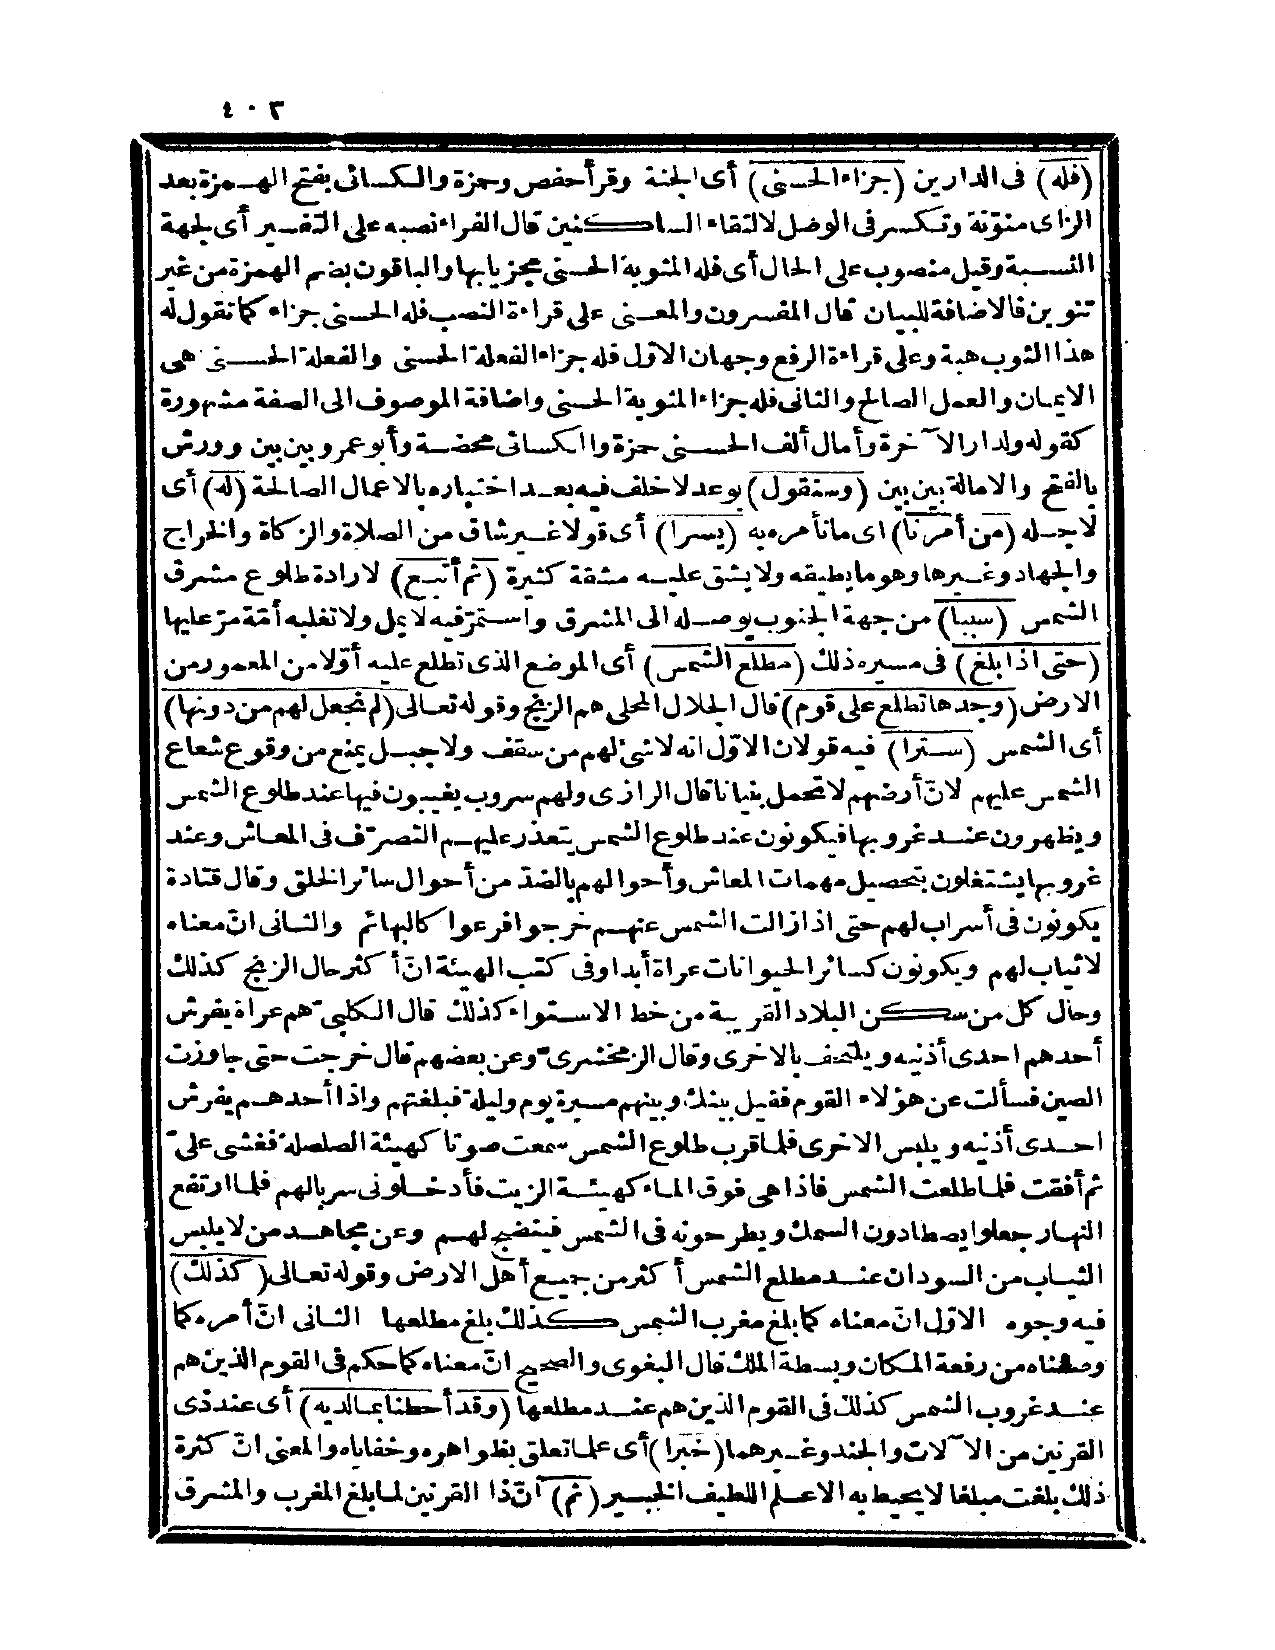 ٤٠٢
(فله) فى الدارين (جزاء الحسنى) أى الجنة وقرأ حفص وحمزة والكسائى بفتح الهمزة بعد
الزاى منوّنة وتكسر فى الوصل لالتقاء الساكنين قال الفراء نصبه على التفسير أى لجهة
النسبة وقيل منصوب على الحال أى فله المثوبة الحسنى مجزيا بها والباقون بضم الهمزة من غير
تنوين فالاضافة للبيان قال المفسرون والمعنى على قراءة النصب فله الحسنى جزاء كما تقول له
هذا الثوب هبة وعلى قراءة الرفع وجهان الاوّل فله جزاء الفعلة الحسنى والفعلة الحسنى هى
الايمان والعمل الصالح والثانى فله جزاء المثوبة الحسنى واضافة الموصوف الى الصفة مشهورة
كقوله ولدار الآخرة وأمال ألف الحسنى حمزة والكسائى محضة وأبو عمرو بين بين وورش
بالفتح والامالة بين بين (وسنقول) بوعد لا خلف فيه بعد اختباره بالاعمال الصالحة (له) أى
لاجله (من أمرنا) اى ما نأمر به (يسرا) أى قولا غير شاق من الصلاة والزكاة والخراج
والجهاد وغيرها وهو ما يطيقه ولا يشق عليه مشقة كثيرة (ثم أتبع) لارادة طلوع مشرق
الشمس (سببا) من جهة الجنوب يوصله الى المشرق واستمرّ فيه لا يمل ولا تغلبه أمّة مرّ عليها
(حتى اذا بلغ) فى مسيره ذلك (مطلع الشمس) أى الموضع الذى تطلع عليه أوّلا من المعمور من
الارض (وجدها تطلع على قوم) قال الجلال المحلى هم الزنج وقوله تعالى (لم نجعل لهم من دونها)
أى الشمس (سترا) فيه قولان الاوّل انه لا شئ لهم من سقف ولا جبل يمنع من وقوع شعاع
الشمس عليهم لانّ أرضهم لا تحمل بنيانا قال الرازى ولهم سروب يغيبون فيها عند طلوع الشمس
ويظهرون عند غروبها فيكونون عند طلوع الشمس يتعذر عليهم التصرّف فى المعاش وعند
غروبها يشتغلون بتحصيل مهمات المعاش وأحوالهم بالضدّ من أحوال سائر الخلق وقال قتادة
يكونون فى أسراب لهم حتى اذا زالت الشمس عنهم خرجوا فرعوا كالبهائم والثانى انّ معناه
لا ثياب لهم ويكونون كسائر الحيوانات عراة أبدا وفى كتب الهيئة انّ أكثر حال الزنج كذلك
وحال كل من سكن البلاد القريبة من خط الاستواء كذلك قال الكلبىّ هم عراة يفرش
أحدهم احدى أذنيه ويلتحف بالاخرى وقال الزمخشرىّ وعن بعضهم قال خرجت حتى جاوزت
الصين فسألت عن هؤلاء القوم فقيل بينك وبينهم مسيرة يوم وليلة فبلغتهم واذا أحدهم يفرش
احدى أذنيه ويلبس الاخرى فلما قرب طلوع الشمس سمعت صوتا كهيئة الصلصلة فغشى علىّ
ثم أفقت فلما طلعت الشمس فاذا هى فوق الماء كهيئة الزيت فأدخلونى سربالهم فلما ارتفع
النهار جعلوا يصطادون السمك ويطرحونه فى الشمس فينضج لهم وعن مجاهد من لا يلبس
الثياب من السودان عند مطلع الشمس أكثر من جميع أهل الارض وقوله تعالى (كذلك)
فيه وجوه الاوّل انّ معناه كما بلغ مغرب الشمس كذلك بلغ مطلعها الثانى انّ أمره كما
وصفناه من رفعة المكان وبسطة الملك قال البغوى والصحيح انّ معناه كما حكم فى القوم الذين هم
عند غروب الشمس كذلك فى القوم الذين هم عند مطلعها (وقد أحطنا بما لديه) أى عند ذى
القرنين من الآلات والجند وغيرهما (خبرا) أى علما تعلق بظواهره وخفاياه والمعنى انّ كثرة
ذلك بلغت مبلغا لا يحيط به الا علم اللطيف الخبير (ثم) انّ ذا القرنين لما بلغ المغرب والمشرق